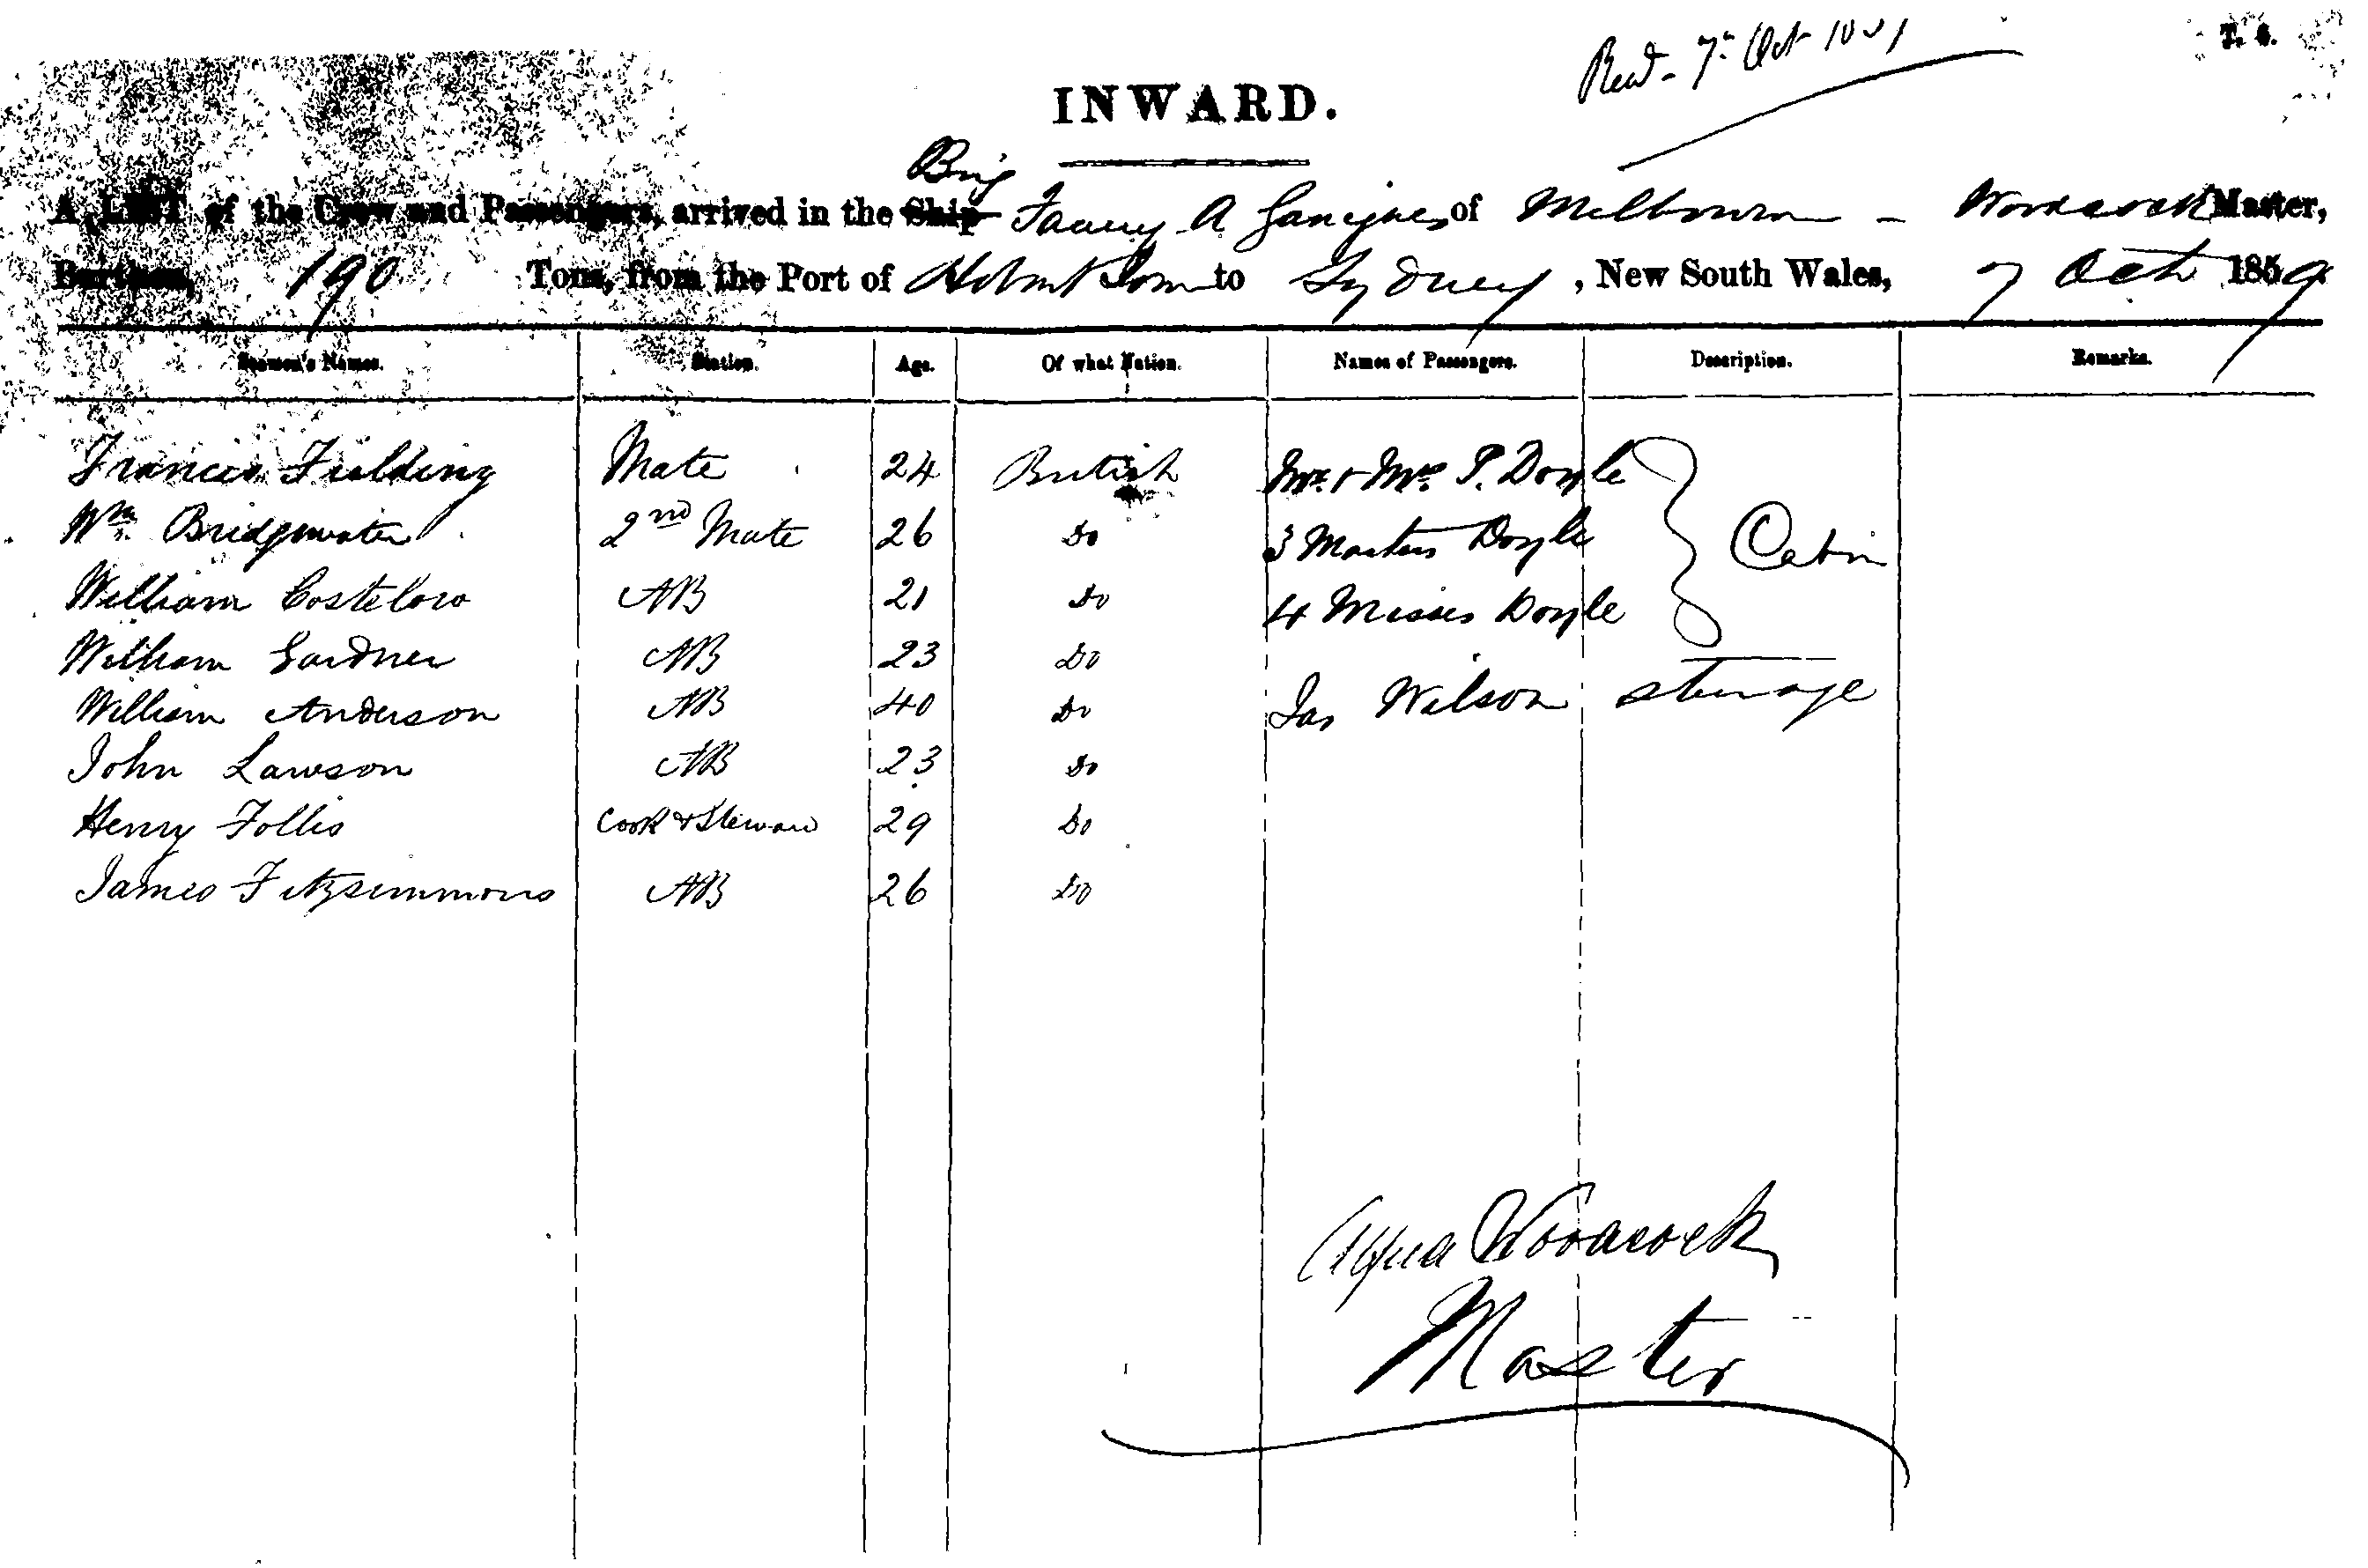 Recd. 7th Oct 1859
T. 6.
INWARD.
Brig
A LIST of the Crew and Passengers, arrived in the Ship Fanny A Garrigues of Melbourne - Woodacock Master,
Burthen, 190 Tons, from the Port of Hobart Town to Sydney, New South Wales, 7 Oct 1859
Seamen's Names. Station. Age. Of what Nation. Names of Passengers. Description. Remarks.
Frances Fielding Mate 24 British Mr. & Mrs P. Doyle
Wm. Bridgewater 2nd Mate 26 Do 3 Masters Doyle Cabin
William Costelow AB 21 Do 4 Misses Doyle
William Gardner AB 23 Do
William Anderson AB 40 Do Jas Wilson sterage
John Lawson AB 23 Do
Henry Follis Cook & Steward 29 Do
James Fitzsimmons AB 26 Do
Woodacock
Master